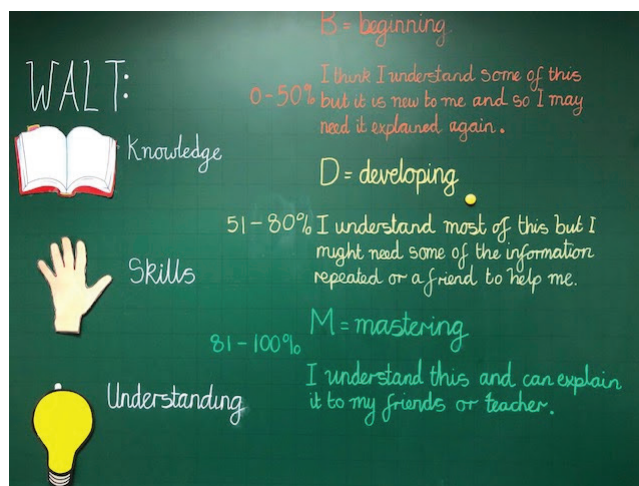 WALT:
Knowledge
Skills
Understanding
B = beginning
0-50% I think I understand some of this
but it is new to me and so I may
need it explained again.
D = developing
51-80% I understand most of this but I
might need some of the information
repeated or a friend to help me.
M = mastering
81-100%
I understand this and can explain
it to my friends or teacher.